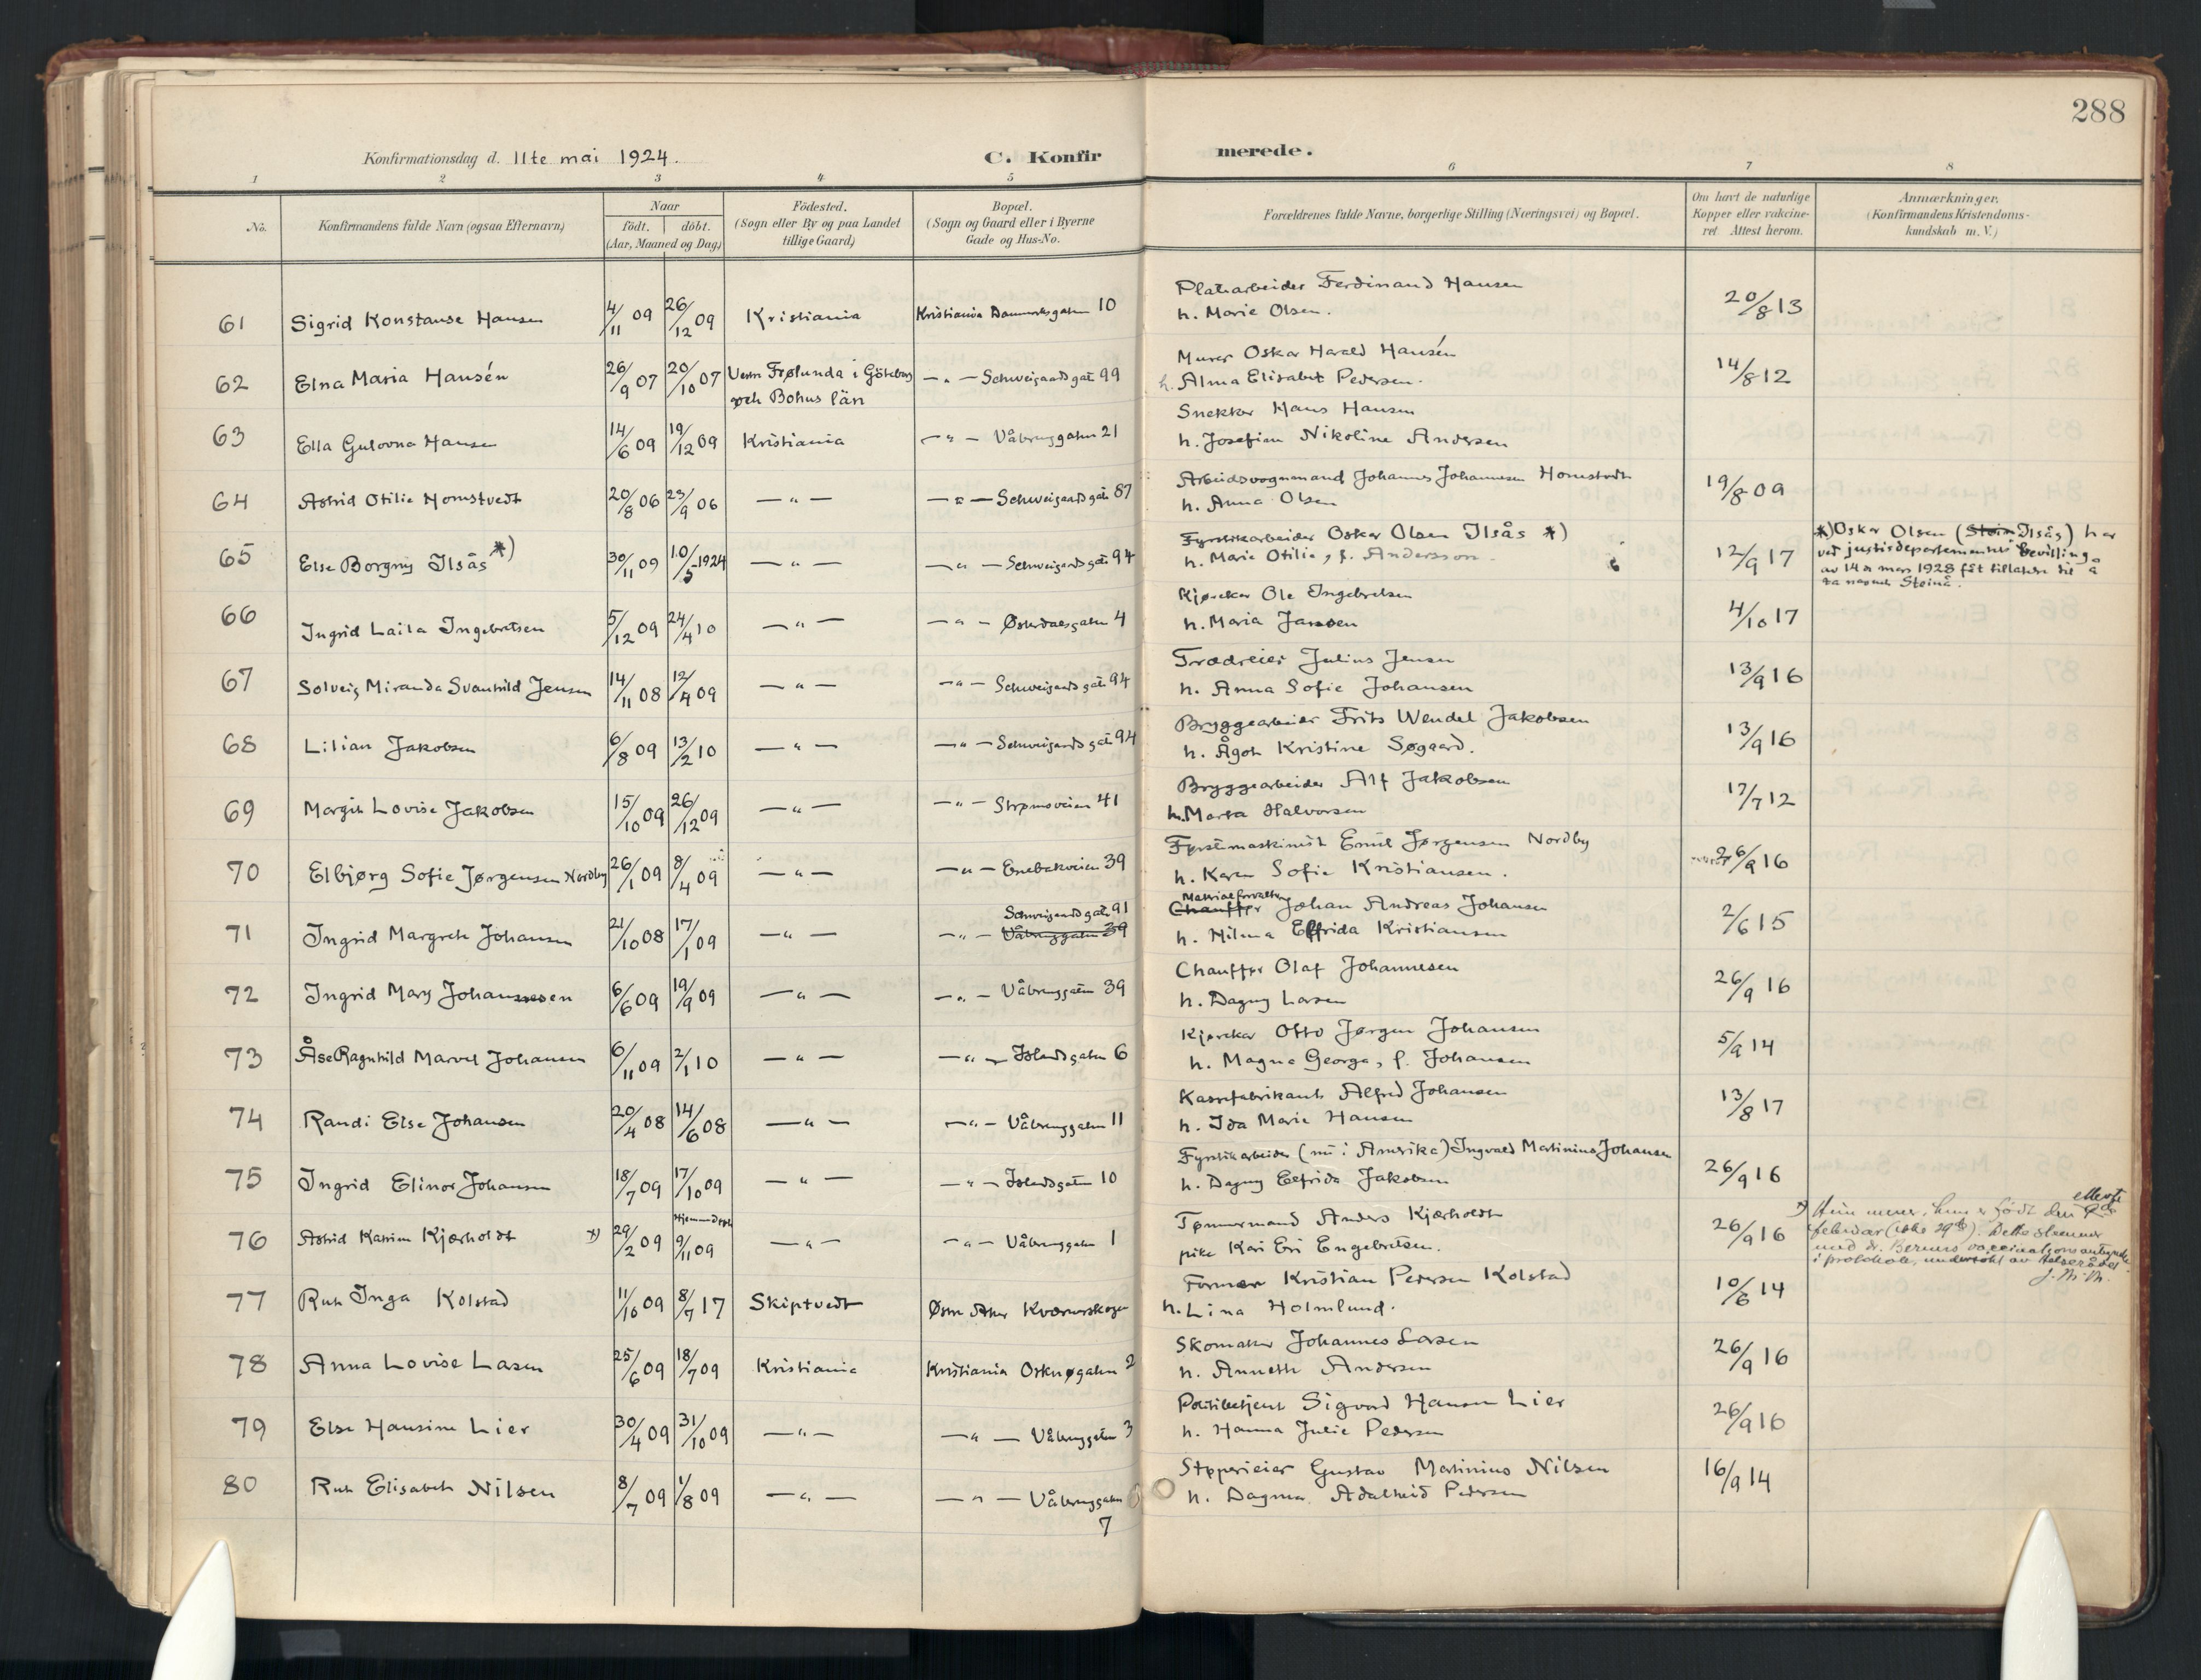 288
Konfirmationsdag d. 11te mai 1924.
C. Konfirmerede.
1 2 3 4 5 6 7 8
No.
Konfirmandens fulde Navn (ogsaa Efternavn)
Naar
födt. döbt.
(Aar, Maaned og Dag)
Födested.
(Sogn eller By og paa Landet
tillige Gaard)
Bopæl.
(Sogn og Gaard eller i Byerne
Gade og Hus-No.
Forældrenes fulde Navne, borgerlige Stilling (Næringsvei) og Bopæl.
Om havt de naturlige
Kopper eller vakcine-
ret. Attest herom.
Anmærkninger.
(Konfirmandens Kristendoms-
kundskab m. V.)
61 Sigrid Konstanse Hansen 4/11 09 26/12 09 Kristiania Kristiania Danmarksgaten 10 Platearbeider Ferdinand Hansen 20/8 13
h. Marie Olsen.
62 Elna Maria Hansén 26/9 07 20/10 07 Vestn Frølunda i Göteborg — " — Schweigaardsgate 99 Murer Oskar Harald Hansén 14/8 12
och Bohus län h. Alma Elisabet Pedersen.
63 Ella Gulovna Hansen 14/6 09 19/12 09 Kristiania — " — Vålerenggaten 21 Snekker Hans Hansen
h. Josefine Nikoline Andersen
64 Astrid Otilie Homstvedt 20/8 06 23/9 06 — " — — " — Schweigaardsgate 87 Arbeidsvognmand Johannes Johannesen Homstvedt 19/8 09
h. Anna Olsen
65 Else Borgny Ilsås *) 30/11 09 10/5 1924 — " — — " — Schweigaardsgate 94 Fyrstikarbeider Oskar Olsen Ilsås *) 12/9 17
h. Marie Otilie, f. Andersson.
*) Oskar Olsen (Stein Ilsås) har
ved justisdepartementets bevilling
av 14de mars 1928 fåt tillatelse til å
ta navnet Steinå.
66 Ingrid Laila Ingebretsen 5/12 09 24/4 10 — " — — " — Østerdalsgaten 4 Kjørekar Ole Ingebretsen 4/10 17
h. Maria Jansen
67 Solveig Miranda Svanhild Jensen 14/11 08 12/4 09 — " — — " — Schweigaardsgate 94 Trædreier Julius Jensen 13/9 16
h. Anna Sofie Johansen
68 Lilian Jakobsen 6/8 09 13/2 10 — " — — " — Schweigaardsgate 94 Bryggearbeider Frits Wendel Jakobsen 13/9 16
h. Ågot Kristine Søgaard.
69 Margit Lovise Jakobsen 15/10 09 26/12 09 — " — — " — Strømsveien 41 Bryggearbeider Alf Jakobsen 17/7 12
h. Marta Halvorsen
70 Elbjørg Sofie Jørgensen Nordby 26/1 09 8/4 09 — " — — " — Enebakveien 39 Fyrstikmaskinist Emil Jørgensen Nordby 26/9 16
h. Karen Sofie Kristiansen.
71 Ingrid Margrete Johansen 21/10 08 17/1 09 — " — — " — Schweigaardsgate 91 Vålerenggaten 39 Materialforvalter Chauffør Johan Andreas Johansen 2/6 15
h. Hilma Elfrida Kristiansen
72 Ingrid Mary Johannesen 6/6 09 19/9 09 — " — — " — Vålerenggaten 39 Chauffør Olaf Johannesen 26/9 16
h. Dagny Larsen
73 Åse Ragnhild Marvel Johansen 6/11 09 2/1 10 — " — — " — Islandsgaten 6 Kjørekar Otto Jørgen Johansen 5/9 14
h. Magna Georga, f. Johansen
74 Randi Else Johansen 20/4 08 14/6 08 — " — — " — Vålerenggaten 11 Kassefabrikant Alfred Johansen 13/8 17
h. Ida Marie Hansen
75 Ingrid Elinor Johansen 18/7 09 17/10 09 — " — — " — Islandsgaten 10 Fyrstikarbeider (nu i Amerika) Ingvald Martinius Johansen 26/9 16
h. Dagny Elfrida Jakobsen
76 Astrid Katrine Kjærholdt x) 29/2 09 Hjemmedøpt 9/11 09 — " — — " — Vålerenggaten 1 Tømmermand Anders Kjærholdt 26/9 16
pike Kari Eri Engebretsen.
x) Hun mener, hun er født den ellevte
februar (ikke 29de). Dette stemmer
med dr. Berners vaccinationsantegnelse
i protokol, undersøkt av helserådet
77 Rut Inga Kolstad 11/10 09 8/7 17 Skiptvedt Østre Aker Kværnerskogen Former Kristian Pedersen Kolstad 10/6 14
h. Lina Holmlund.
78 Anna Lovise Larsen 25/6 09 18/7 09 Kristiania Kristiania Orknøgaten 2 Skomaker Johannes Larsen 26/9 16
h. Annette Andersen
79 Else Hansine Lier 30/4 09 31/10 09 — " — — " — Vålerenggaten 3 Politibetjent Sigvard Hansen Lier 26/9 16
h. Hanna Julie Pedersen
80 Rut Elisabeth Nilsen 8/7 09 1/8 09 — " — — " — Vålerenggaten 7 Støperieier Gustav Martinius Nilsen 16/9 14
h. Dagmar Adalheid Pedersen